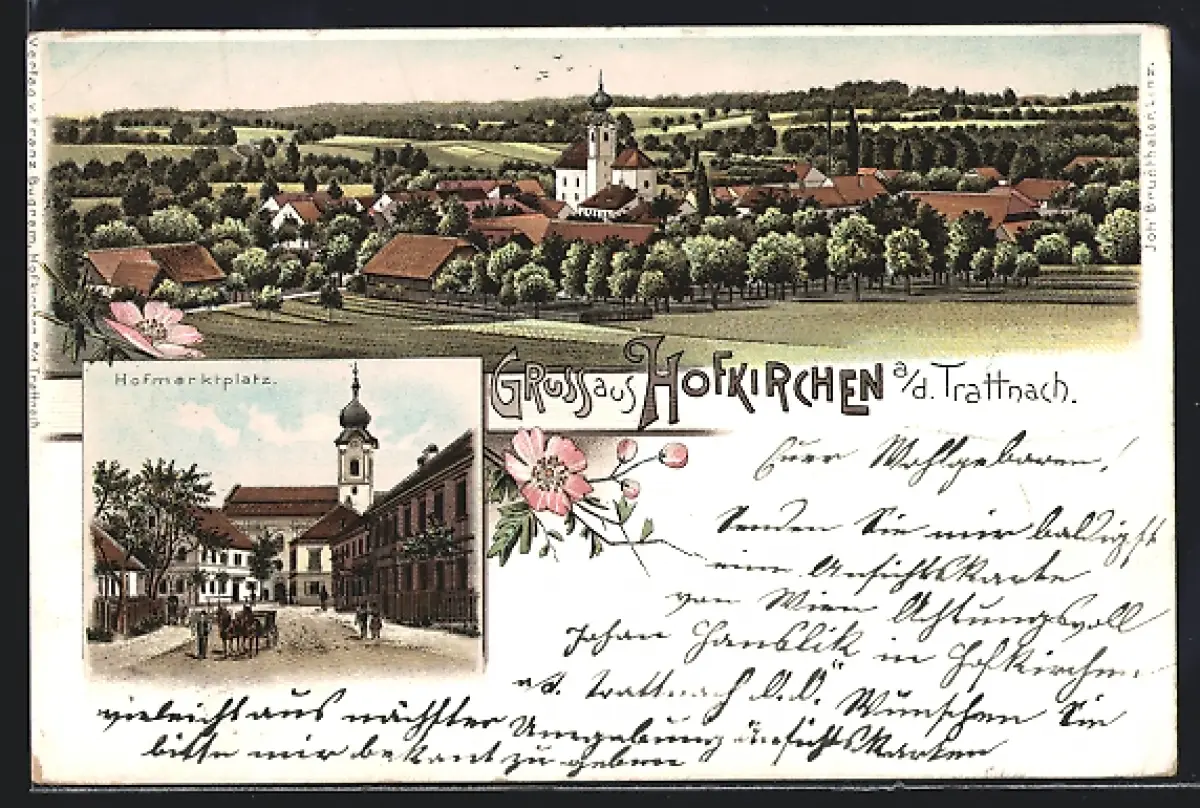 Verlag v. Franz Bugram, Hofkirchen a/d Trattnach
Joh. Brunthaler, Linz.
Hofmarktplatz.
Gruss aus Hofkirchen a/d. Trattnach.
Euer Wohlgeboren!
Senden Sie mir baldigst
eine Ansichtskarte
von Wien Achtungsvoll
Johan Hanslik in Hofkirchen
a/d. Trattnach O.Ö. Wünschen Sie
vieleicht aus nächster Umgebung Ansichtskarten
bitte mir bekant zu geben